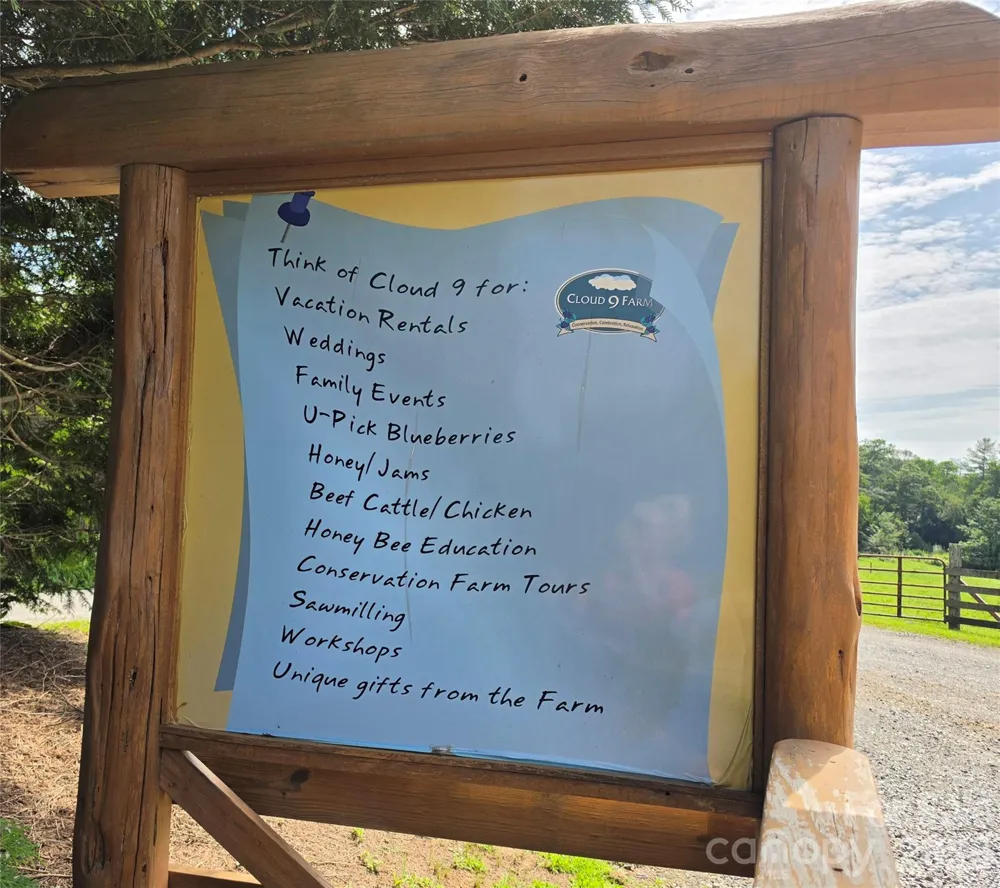 Think of Cloud 9 for:
Vacation Rentals
Weddings
Family Events
U-Pick Blueberries
Honey/Jams
Beef Cattle/Chicken
Honey Bee Education
Conservation Farm Tours
Sawmilling
Workshops
Unique gifts from the Farm
CLOUD 9 FARM
Conservation, Celebration, Relaxation